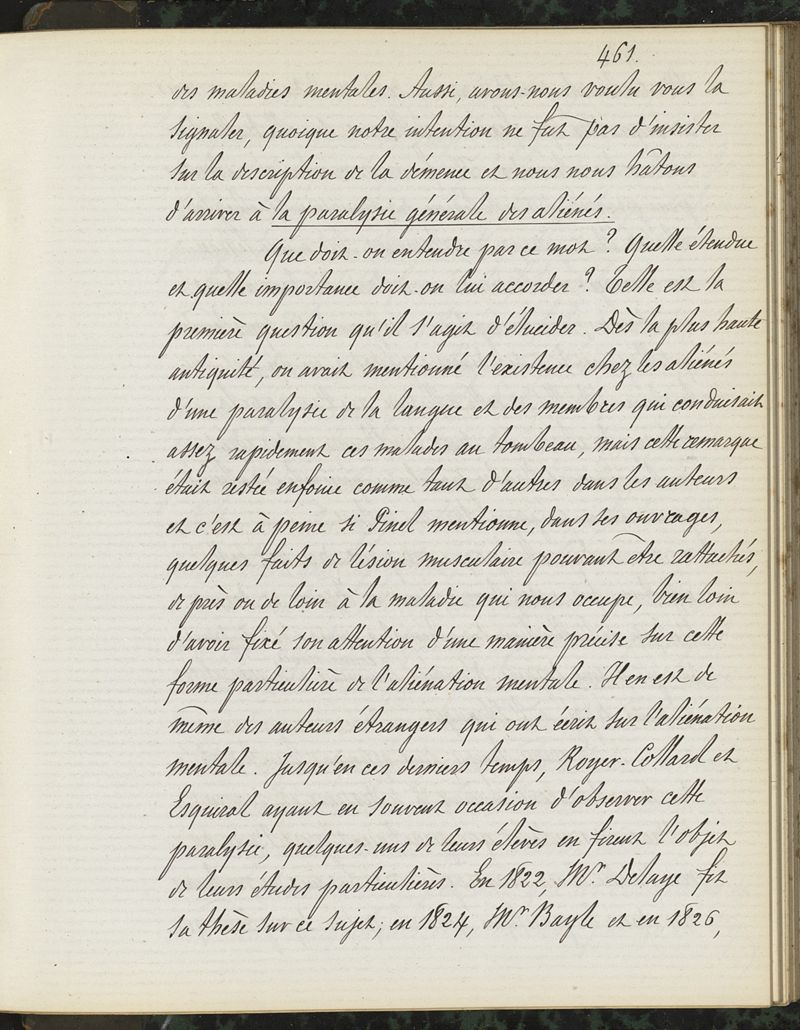 461.
des maladies mentales. Aussi, avons-nous voulu vous la
signaler, quoique notre intention ne fut pas d'insister
sur la description de la démence et nous nous hâtons
d'arriver à la paralysie générale des aliénés.
Que doit-on entendre par ce mot ? Quelle étendue
et quelle importance doit-on lui accorder ? Telle est la
première question qu'il s'agit d'élucider. Dès la plus haute
antiquité, on avait mentionné l'existence chez les aliénés
d'une paralysie de la langue et des membres qui conduisait
assez rapidement ces malades au tombeau, mais cette remarque
était restée enfouie comme tant d'autres dans les auteurs
et c'est à peine si Pinel mentionne, dans ses ouvrages,
quelques faits de lésion musculaire pouvant être rattachés,
de près ou de loin à la maladie qui nous occupe, bien loin
d'avoir fixé son attention d'une manière précise sur cette
forme particulière de l'aliénation mentale. Il en est de
même des auteurs étrangers qui ont écrit sur l'aliénation
mentale. Jusqu'en ces derniers temps, Royer-Collard et
Esquirol ayant eu souvent occasion d'observer cette
paralysie, quelques-uns de leurs élèves en firent l'objet
de leurs études particulières. En 1822, Mr. Delaye fit
sa thèse sur ce sujet; en 1824, Mr. Bayle et en 1826,